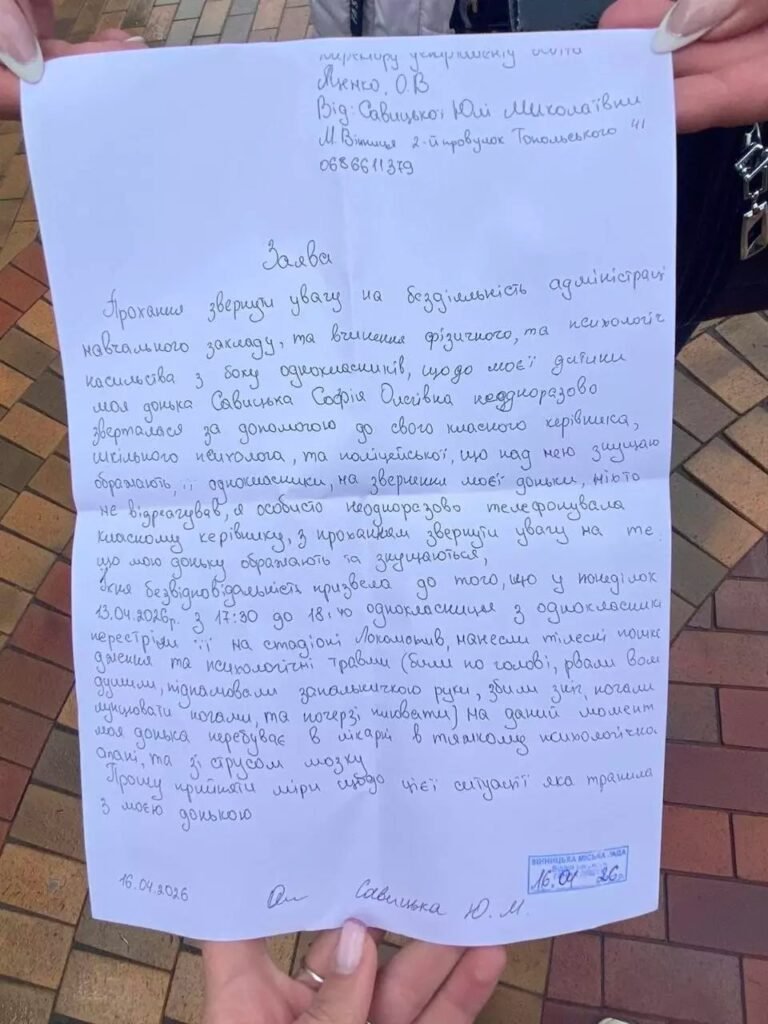 Директору департаменту освіти
Яценко, О.В
Від: Савицької Юлі Миколаївни
м. Вінниця 2-й провулок Топольського 41
0686611379
Заява
Прохання звернути увагу на бездіяльність адміністрації
навчального закладу, та вчинення фізичного, та психологіч
насильства з боку однокласників, щодо моєї дитини
моя донька Савицька Софія Олегівна неодноразово
зверталася за допомогою до свого класного керівника,
шкільного психолога, та поліцейської, що над нею знущаю
ображають, її однокласники, на звернення моєї доньки, ніхто
не відреагував, я особисто неодноразово телефонувала
класному керівнику, з проханням звернути увагу на те
що мою доньку ображають та знущаються,
їхня безвідповідальність призвела до того, що у понеділок
13.04.2026р. з 17:30 до 18:40 однокласниця з однокласник
перестріли її на стадіоні Локомотив, нанесли тілесні пошк
дження та психологічні травми (били по голові, рвали вол
душили, підпалювали запальничкою руки, збили з ніг, ногами
ногами, та почерзі плювати) на даний момент
моя донька перебуває в лікарні в тяжкому психологічно
стані, та зі струсом мозку
Прошу прийняти міри щодо цієї ситуації яка трапила
з моєю донькою
16.04.2026 Савицька Ю. М.
ВІННИЦЬКА МІСЬКА РАДА
16.04 26р.